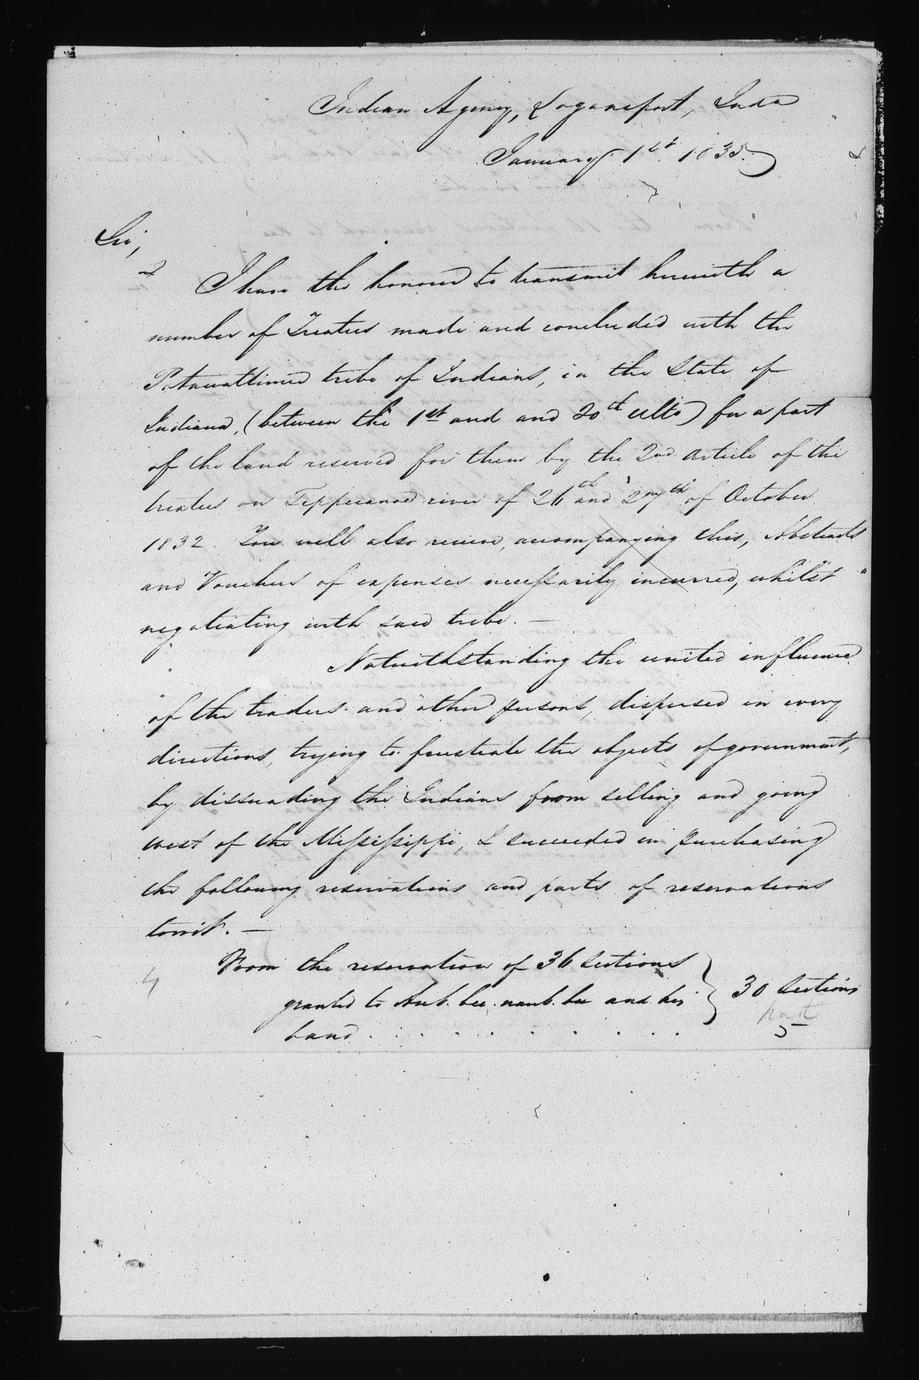 Indian Agency, Logansport, Inda
January 1st. 1835.
Sir,
I have the honour to transmit herewith a
number of Treaties made and concluded with the
Potawattimie tribe of Indians, in the State of
Indiana, (between the 1st and and 20th ulto) for a part
of the land reserved for them by the 2nd article of the
treaties on Tippecanoe river of 26th and 27th of October
1832. You will also receive, accompanying this, Abstracts
and Vouchers of expenses necessarily incurred, whilst
negotiating with said tribe. —
Notwithstanding the united influence
of the traders and other persons, dispersed in every
directions, trying to frustrate the objects of government,
by dissuading the Indians from selling and going
west of the Mississippi, I succeeded in purchasing
the following reservations and parts of reservations
towit. —
From the reservation of 36 sections
granted to Aub.bee.naub.bee and his
band . . . . . . . . . .
30 Sections
part
5